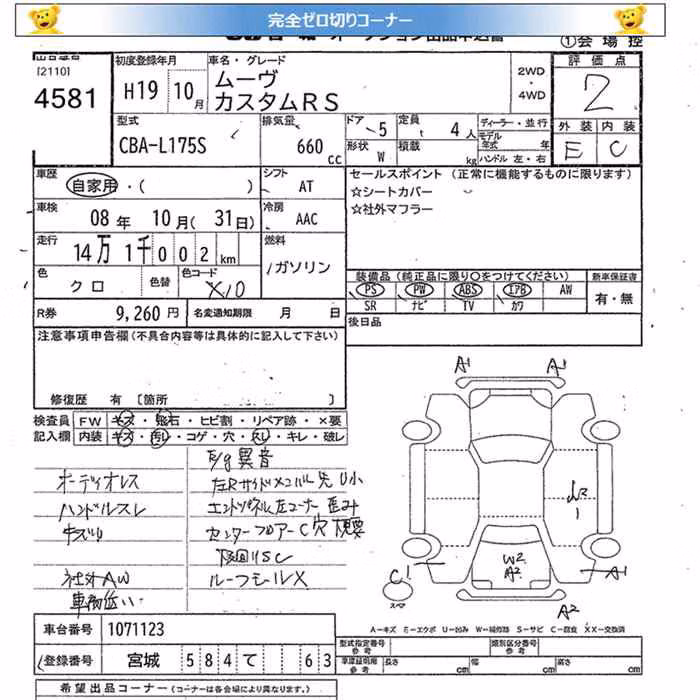 完全ゼロ切りコーナー
①会 場 控
[2110]
4581
初度登録年月
H19 10月
車名・グレード
ムーヴ
カスタムRS
2WD
・
4WD
評 価 点
2
外 装 内 装
E C
型式
CBA-L175S
排気量
660 cc
ドア
5
定員
4 人
形状
W
積載
kg
ディーラー・並行
モデル
年式 年
ハンドル 左・右
車歴
自家用・( )
シフト
AT
車検
08年 10月(31日)
冷房
AAC
走行
14万1千002km
燃料
ガソリン
色
クロ
色替
色コード
X10
R券 9,260円
名変通知期限 月 日
セールスポイント (正常に機能するものに限ります)
☆シートカバー
☆社外マフラー
装備品(純正品に限り○をつけてください)
PS PW ABS エアB AW
SR ナビ TV カワ
新車保証書
有・無
後日品
注意事項申告欄(不具合内容等は具体的に記入して下さい)
修復歴 有 〔箇所 〕
検査員
記入欄
FW キズ・飛石・ヒビ割・リペア跡・×要
内装 キズ・汚し・コゲ・穴・スレ・キレ・破レ
E/g異音
オーディオレス
左Rサイドメンバー先U小
ハンドルスレ
エンドパネル左コーナー歪み
センターフロアーC穴
下廻りSC
社外AW
ルーフモールX
車高低い
A1 A1
W2
A2
A1
A2
C1
スペア
A=キズ E=エクボ U=凹み W=補修跡 S=サビ C=腐食 XX=交換済
車台番号 1071123
登録番号 宮城 584 て 63
型式指定番号
参考
類別区分番号
参考
車庫証明用
参考
長さ cm 幅 cm 高さ cm
希望出品コーナー(コーナーは各会場により異なります。)